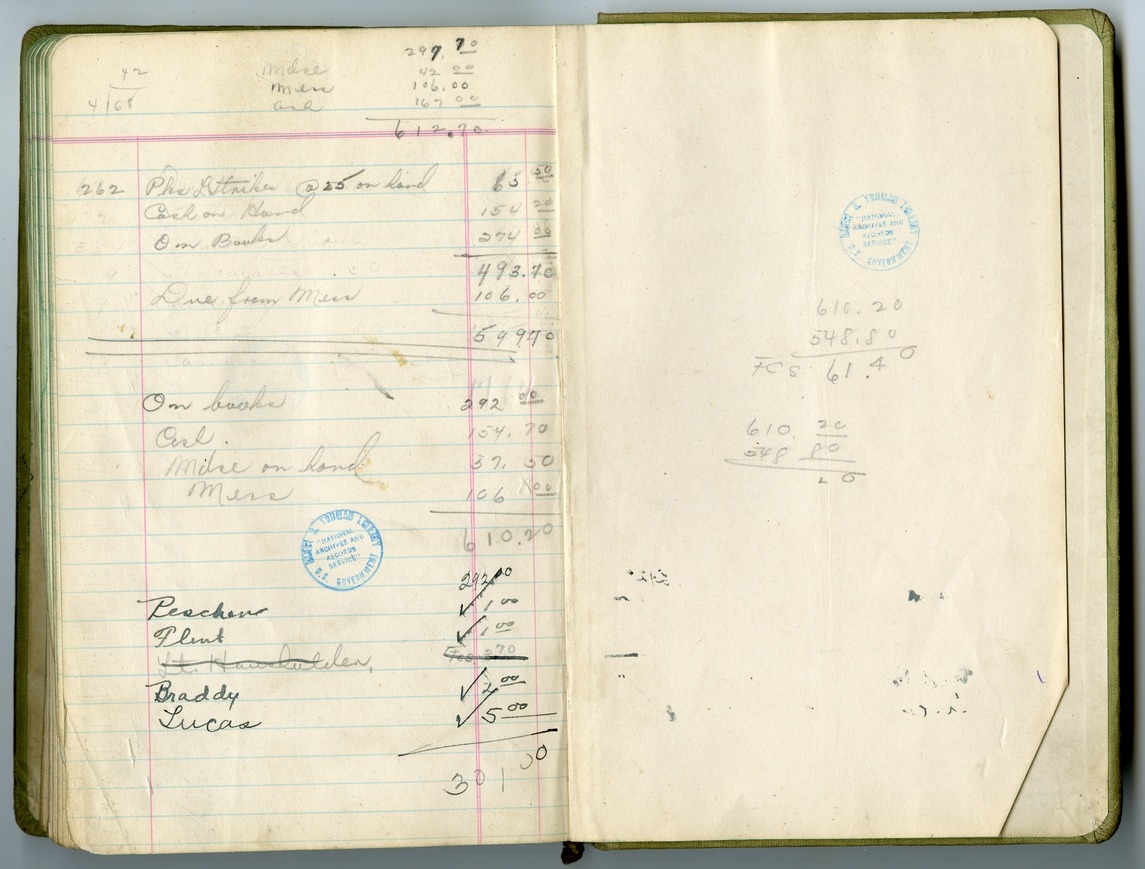 297.70
42
Mdse 42 00
Mess 106.00
4/168
167 00
612.70
262 Pks L Strikes @ 25 on hand 65 50
Cash on Hand 154 20
On Books 274 00
493.70
Due from Mess 106.00
599 70
On books 292 00
Cash. 154.70
Mdse on hand 57.50
Mess 106 00
610.20
HARRY S. TRUMAN LIBRARY
"NATIONAL
ARCHIVES AND
RECORDS
SERVICE"
U.S. GOVERNMENT
292 00
1 00
Flint 1 00
Lt.
370
Braddy 2 00
Lucas 5 00
301 00
HARRY S. TRUMAN LIBRARY
"NATIONAL
ARCHIVES AND
RECORDS
SERVICE"
U.S. GOVERNMENT
610.20
548.80
61.40
610. 20
548 80